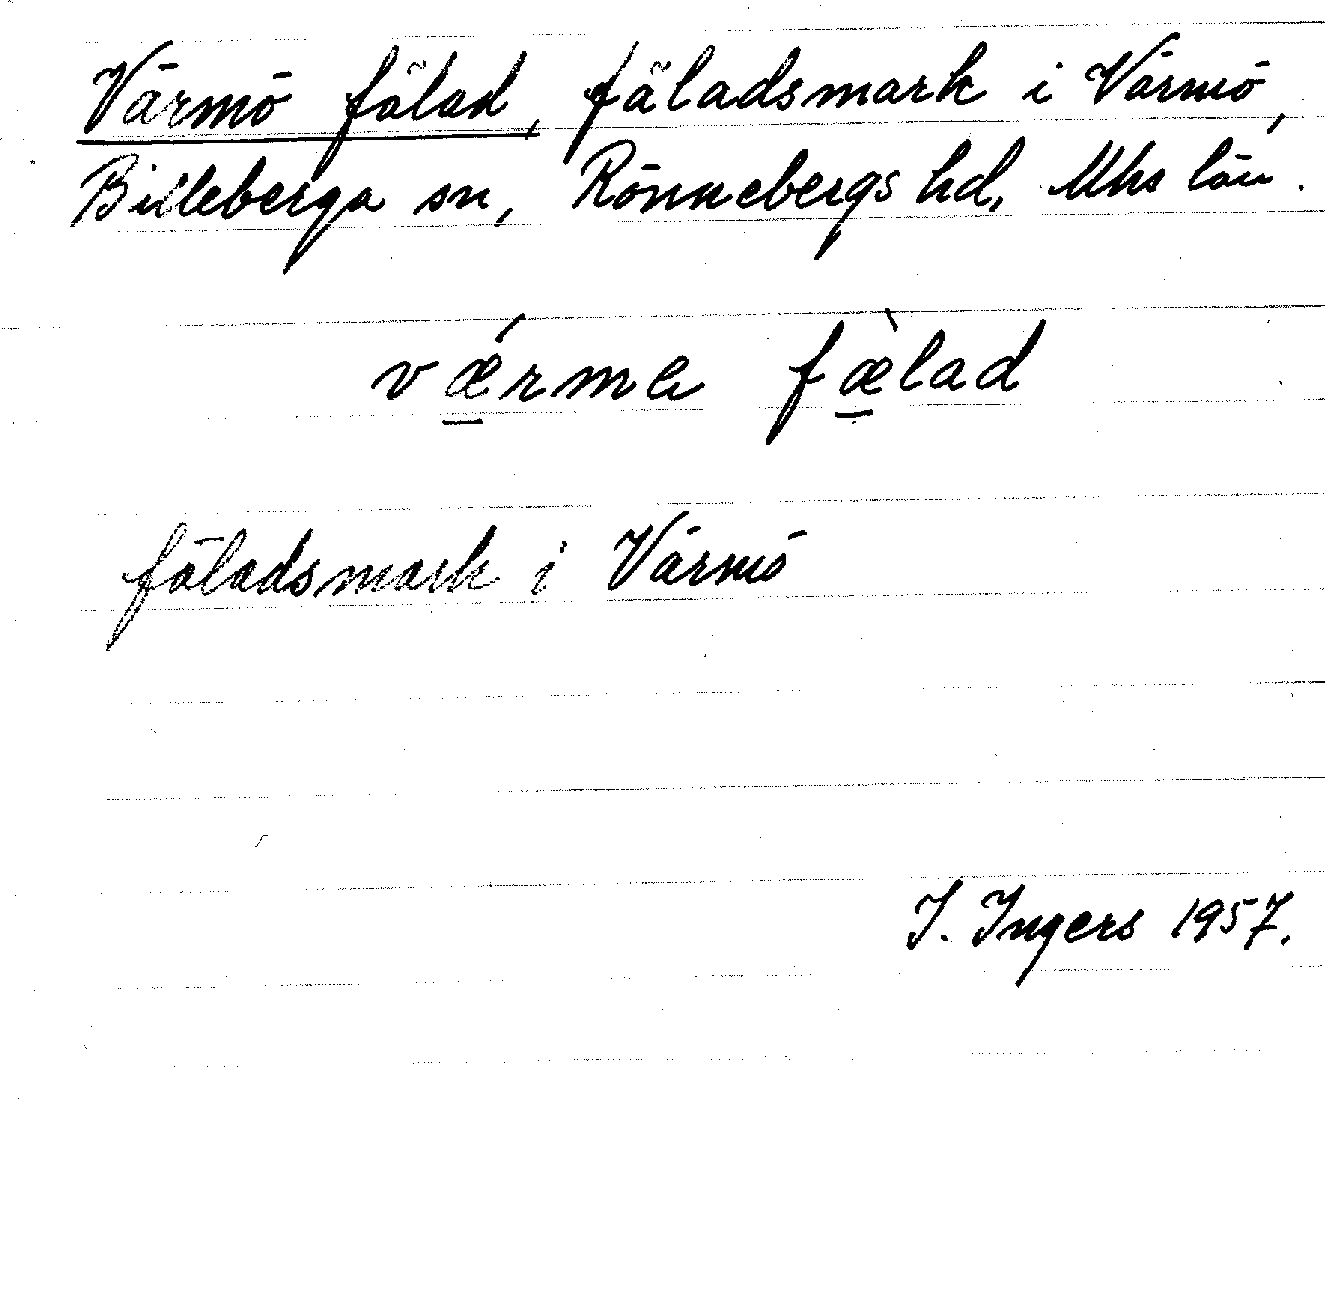 Värmö fälad, fäladsmark i Värmö,
Billeberga sn, Rönnebergs hd, Mhs län.
vǽ̱rmɐ fæ̱̀lad
fäladsmark i Värmö
I. Ingers 1957.